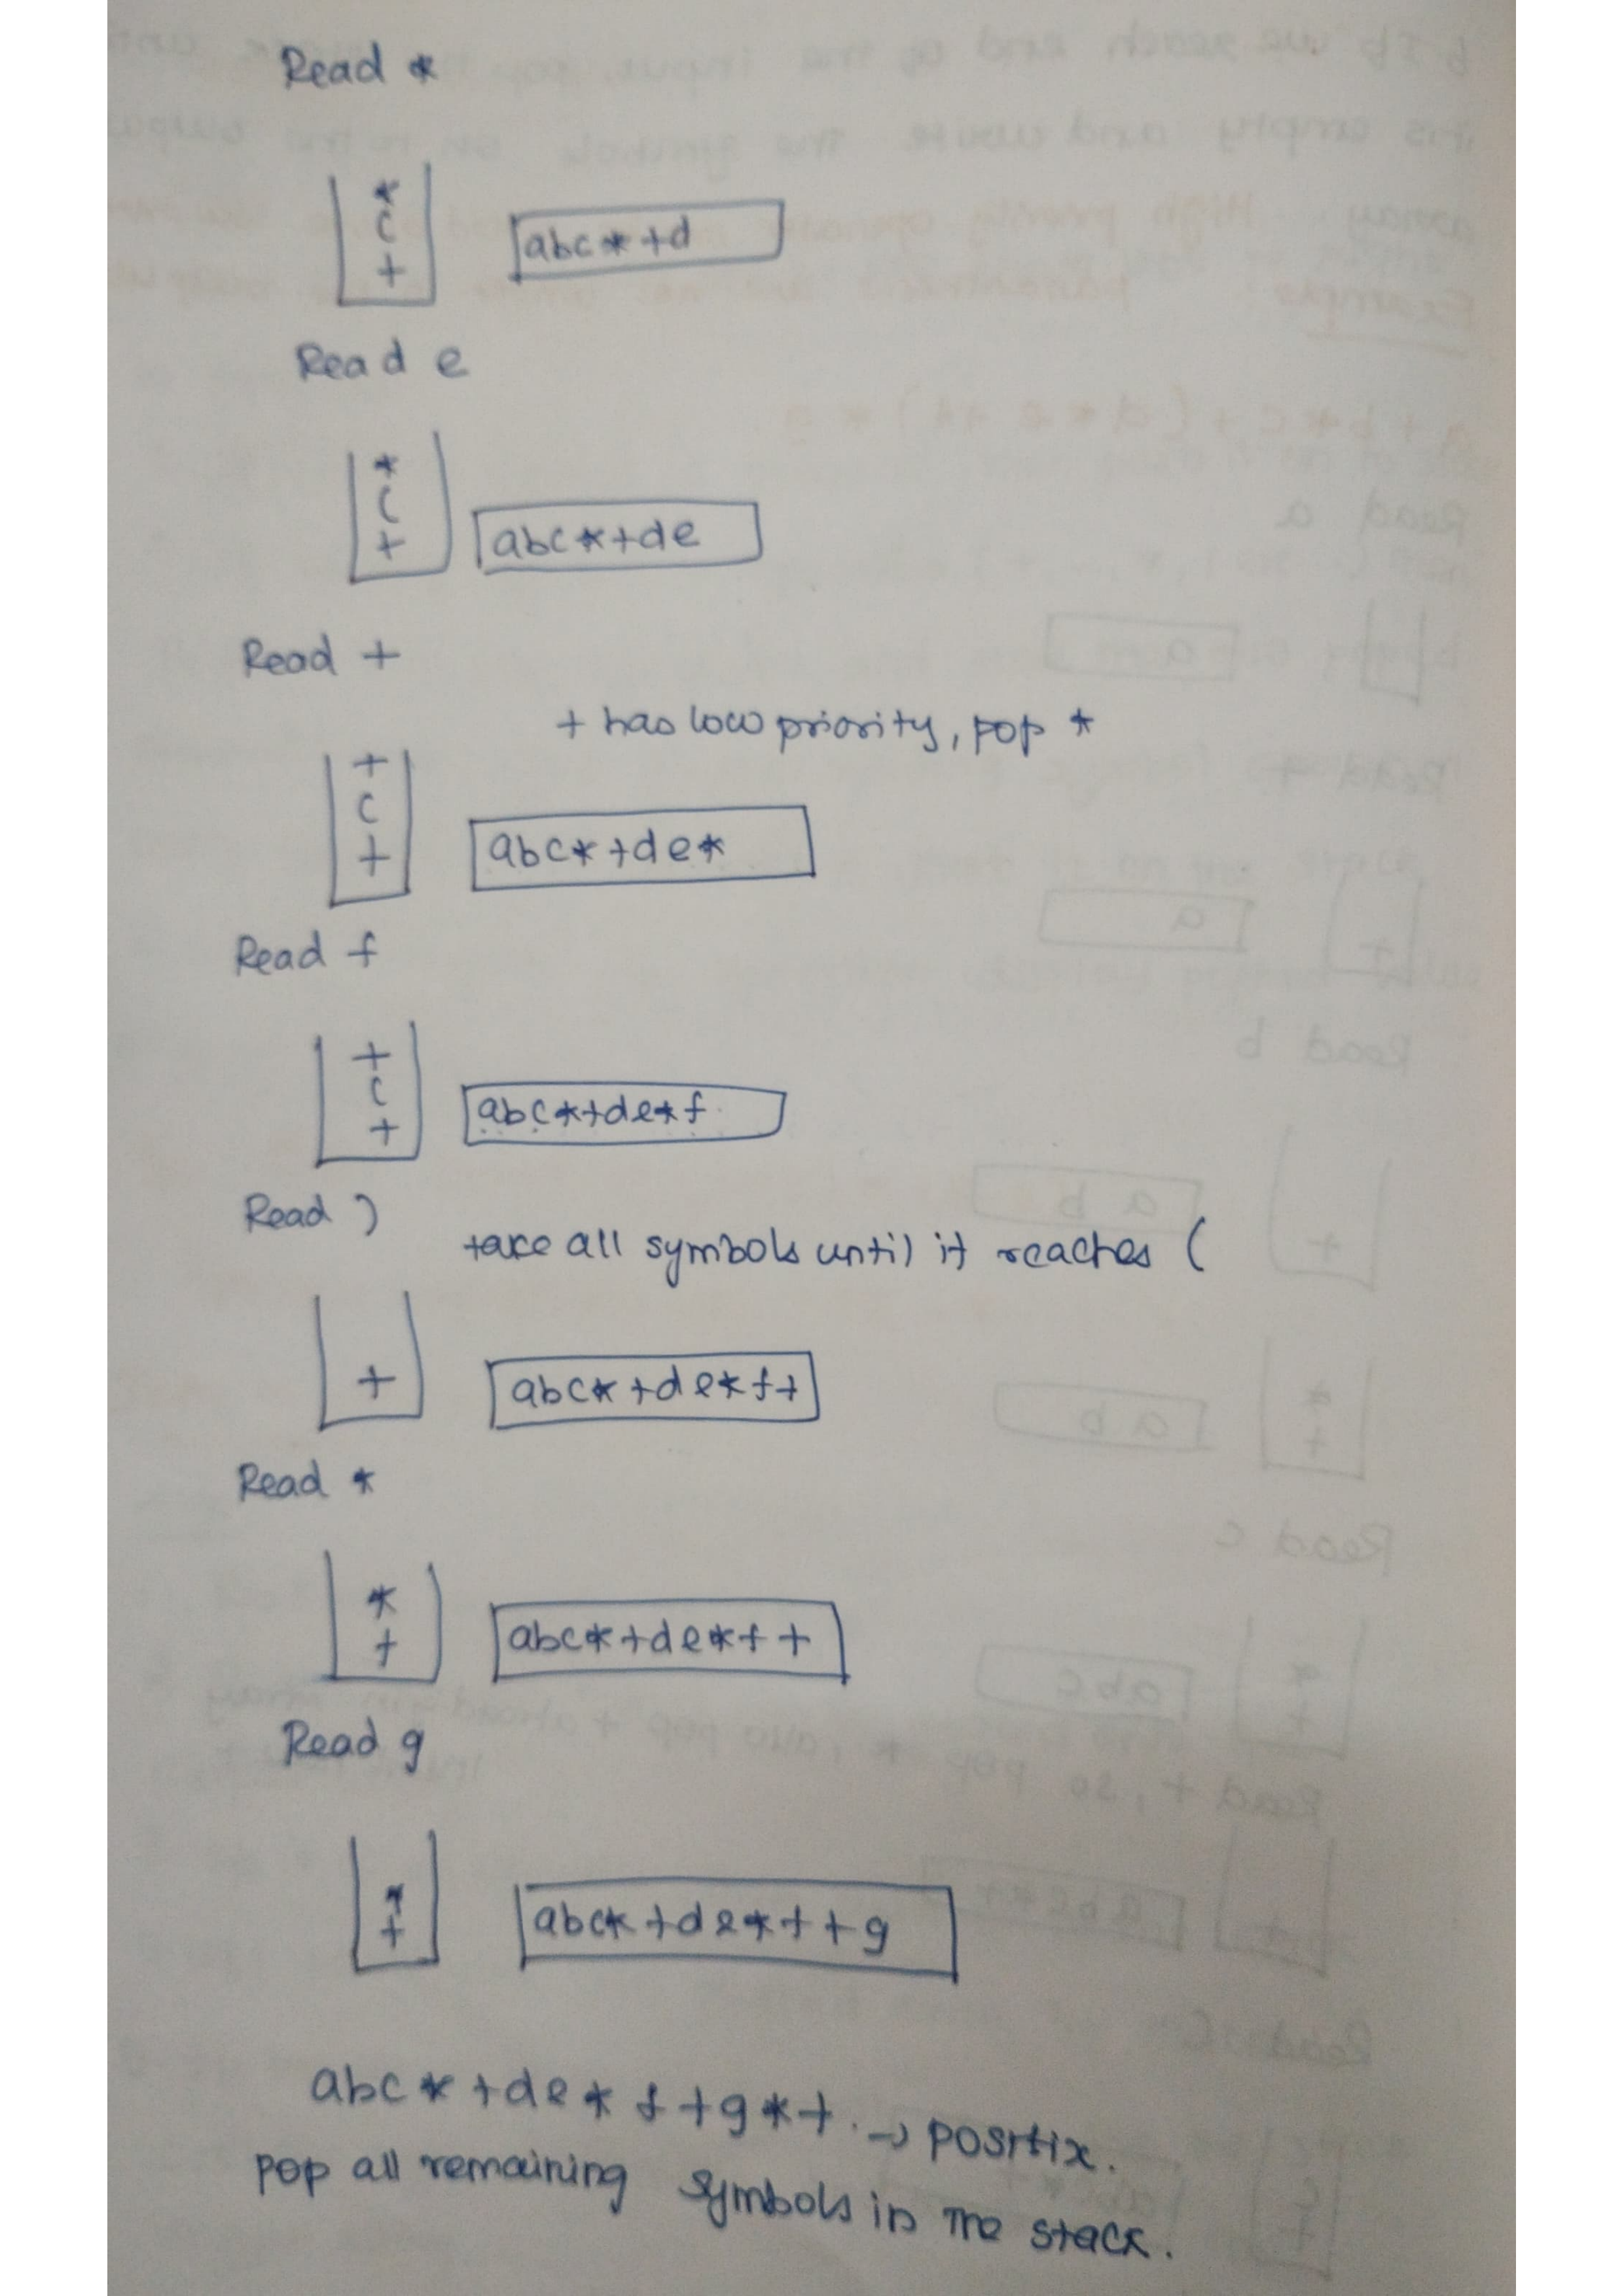 Read *
*
(
+
abc*+d
Read e
*
(
+
abc*+de
Read +
+ has low priority, pop *
+
(
+
abc*+de*
Read f
+
(
+
abc*+de*f
Read )
take all symbols until it reaches (
+
abc*+de*f+
Read *
*
+
abc*+de*f+
Read g
*
+
abc*+de*f+g
abc*+de*f+g*+. → postfix.
pop all remaining symbols in the stack.